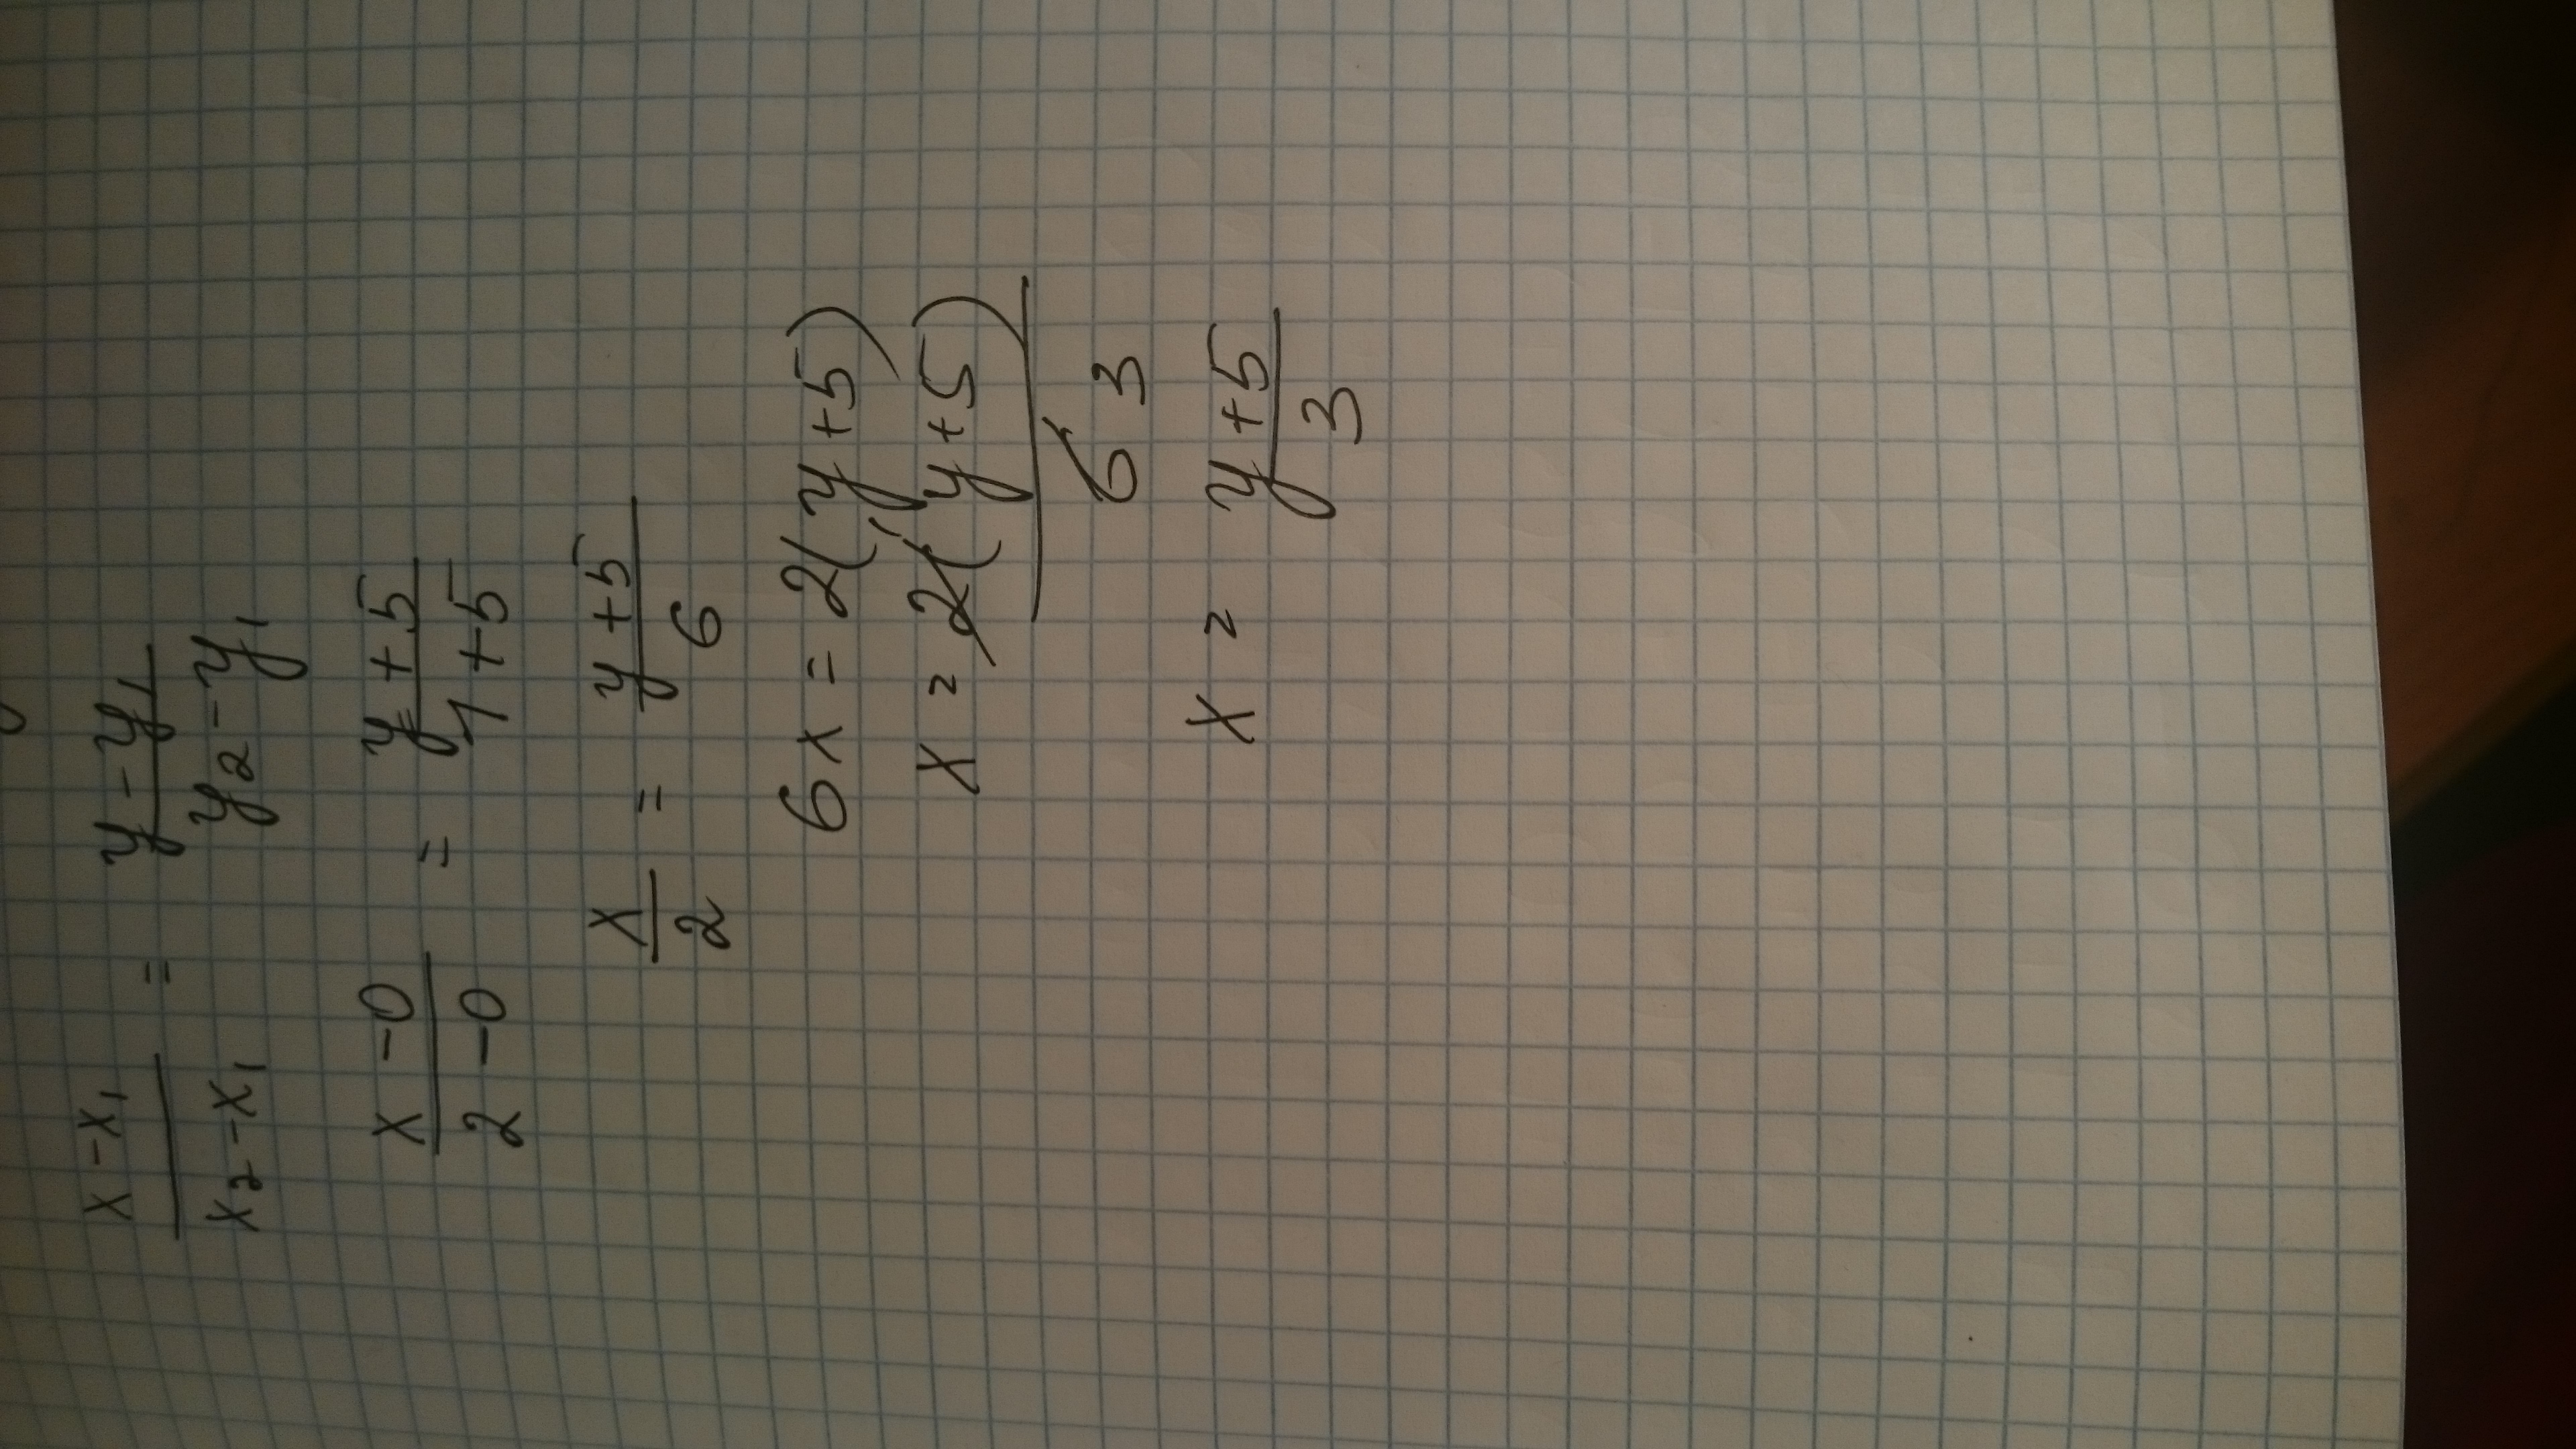 x - x₁ / x₂ - x₁ = y - y₁ / y₂ - y₁
x - 0 / 2 - 0 = y + 5 / 1 + 5
x / 2 = y + 5 / 6
6x = 2(y + 5)
x = 2(y + 5) / 6 3
x = y + 5 / 3